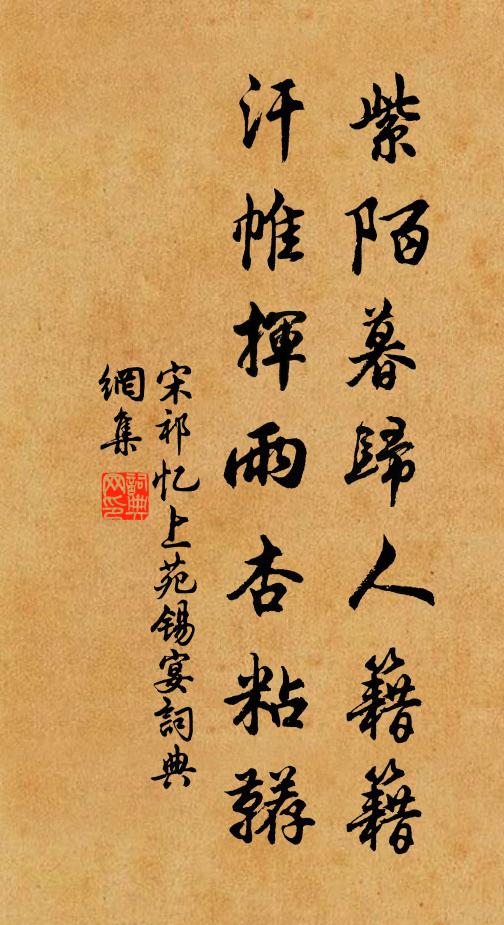 紫陌暮歸人籍籍
汗帷揮雨杏粘韉
宋祁忆上苑锡宴詞典
網集
詞典網印